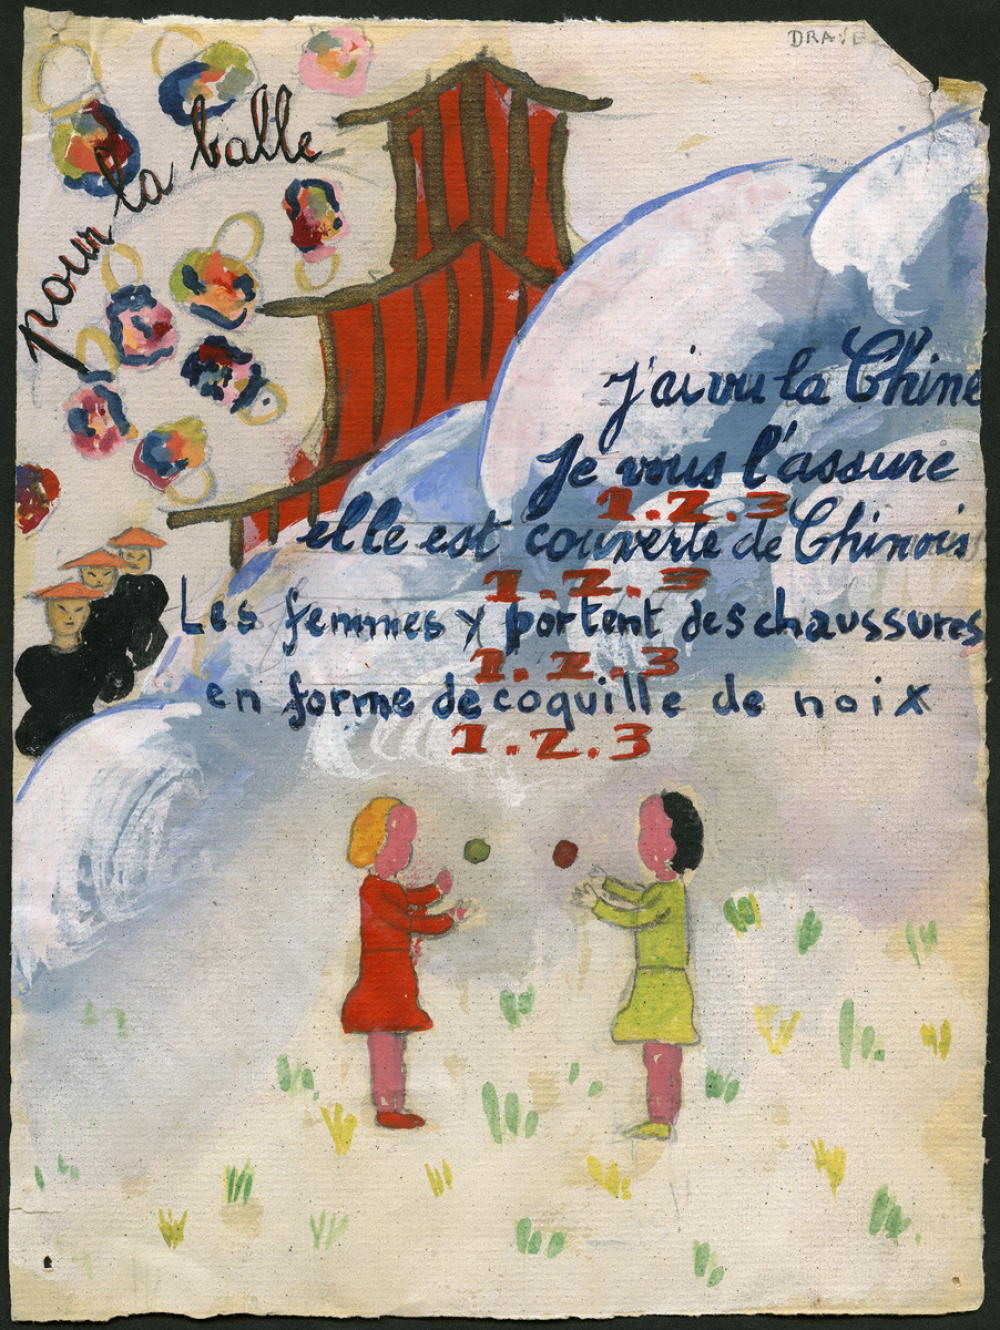 DRAVE
pour la balle
j'ai vu la Chine
Je vous l'assure
1.2.3
elle est couverte de Chinois
1.2.3
Les femmes y portent des chaussures
1.2.3
en forme de coquille de noix
1.2.3